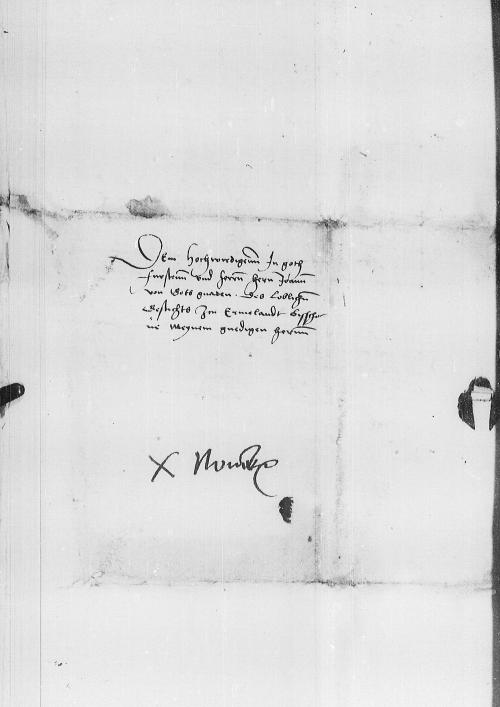 Dem Hochwirdigenn In goth
furstenn vnd hernn hern Joann
von Gots gnaden Des Loblichn
Gestichts Zcu Ermelandt Bisscho
ue meynem gnedigen hernn
X Nouemb